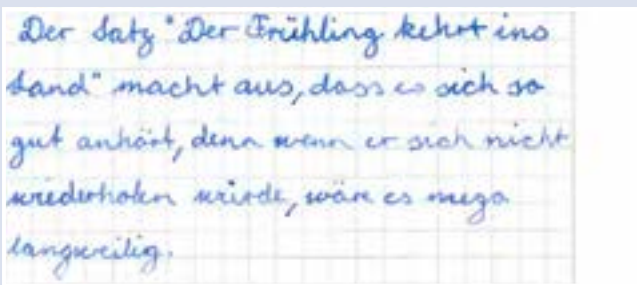 Der Satz "Der Frühling kehrt ins
Land" macht aus, dass es sich so
gut anhört, denn wenn er sich nicht
wiederholen würde, wäre es mega
langweilig.